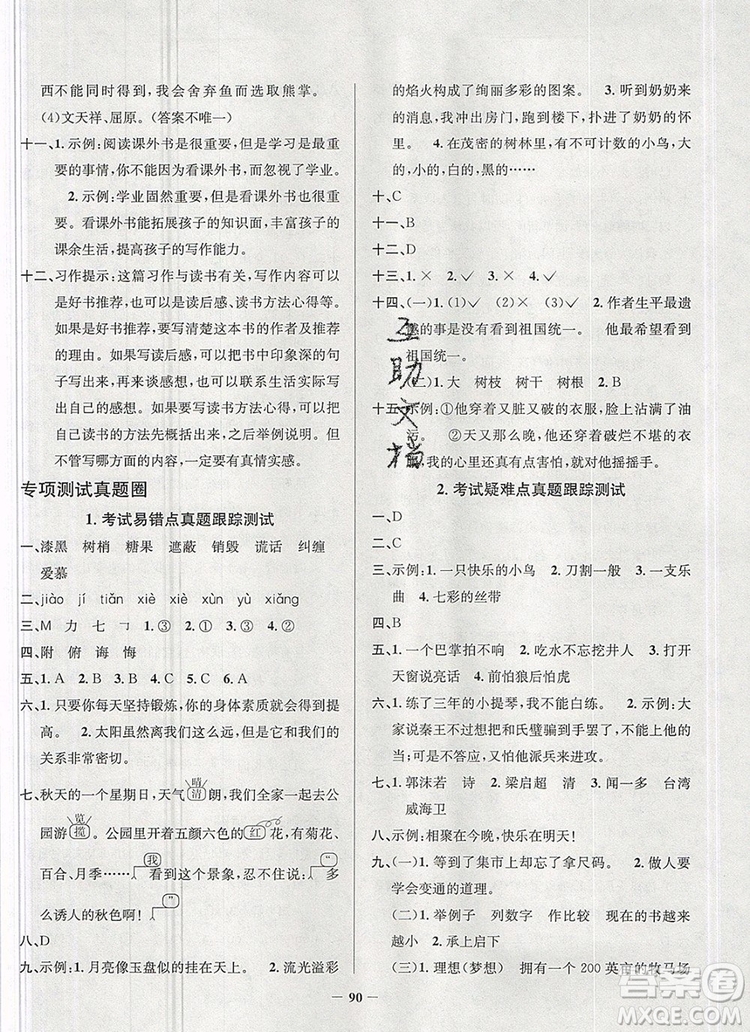 西不能同时得到,我会舍弃鱼而选取熊掌。
(4)文天祥、屈原。(答案不唯一)
十一、1. 示例:阅读课外书是很重要,但学习是最重
要的事情,你不能因为看课外书而影响了学业。
2. 示例:学业固然重要,但是看课外书也很重
要。看课外书能拓展孩子的知识面,丰富孩子的
课余生活,提高孩子的写作能力。
十二、习作提示:这篇习作与读书有关,写作内容可以
是好书推荐,也可以是读后感、读书方法心得等。
如果是好书推荐,要写清楚这本书的内容及推荐
的理由。如果写读后感,可以把书中印象深的句
子写出来,写出自己的感受,也可以联系生活实际写
出自己的感想。如果要写读书方法心得,可以把
自己读书的方法先概括出来,再举例说明。但不
管写哪一方面的内容,一定要有真情实感。
专项测试真题圈
1. 考试易错点真题跟踪测试
一、漆黑 树梢 糖果 遮蔽 销毁 谎话 纠缠
爱慕
二、jiào jí tiān xiè xiè xùn yù xiǎng
三、M 力 七 ㄱ 1.③ 2.① 3.① 4.②
四、附 俯 诲 悔
五、1. A 2. B 3. A 4. C 5. A 6. B
六、1. 只要你每天坚持锻炼,你的身体素质就会得到提
高。 2. 太阳虽然离我们这么远,但是它和我们的
关系非常密切。
七、秋天的一个星期日,天气晴(清)朗,我们全家一起去
公园游览(揽)。公园里开着五颜六色的(红)花,有菊花、
百合、月季……我看到这个景象,忍不住说:“
多么诱人的秋色啊!”
八、D
九、示例:1. 月亮像玉盘似的挂在天上。 2. 流光溢彩
的焰火构成了绚丽多彩的图案。 3. 听到奶奶来
的消息,我冲出房门,跑到楼下,扑进了奶奶的怀
里。 4. 在茂密的树林里,有不可计数的小鸟,大
的,小的,白的,黑的……
十、C
十一、B
十二、D
十三、1.× 2.× 3.✓ 4.✓
十四、(一)1.(1)✓ (2)× (3)✓ 2. 作者生平最遗
憾的事是没有看到祖国统一。他最希望看到
祖国统一。
(二)1. 大 树枝 树干 树根 2. B
十五、示例:①他穿着又脏又破的衣服,脸上沾满了油
污。 ②天又那么晚,他穿着破烂不堪的衣
服,我的心里还真有点害怕,就对他摇摇手。
2. 考试疑难点真题跟踪测试
一、D
二、C
三、示例:1. 一只快乐的小鸟 2. 刀割一般 3. 一支乐
曲 4. 七彩的丝带
四、B
五、1. 一个巴掌拍不响 2. 吃水不忘挖井人 3. 打开
天窗说亮话 4. 前怕狼后怕虎
六、1. 练了三年的小提琴,我不能白练。 2. 示例:大
家说秦王不过想把和氏璧骗到手罢了,不能上他
的当,可是不答应,又怕他派兵来进攻。
七、1. 郭沫若 诗 2. 梁启超 清 3. 香港 台湾
威海卫
八、示例:相聚在今晚,快乐在明天!
九、(一)1. 等到了集市上却忘了拿尺码。 2. 做人要
学会变通的道理。
(二)1. 举例子 列数字 作比较 2. 越来
越小 3. D 4. 承上启下
(三)1. 理想(梦想) 拥有一个 200 英亩的牧马场
互
助
文
档
90
答案圈
MXQE.COM